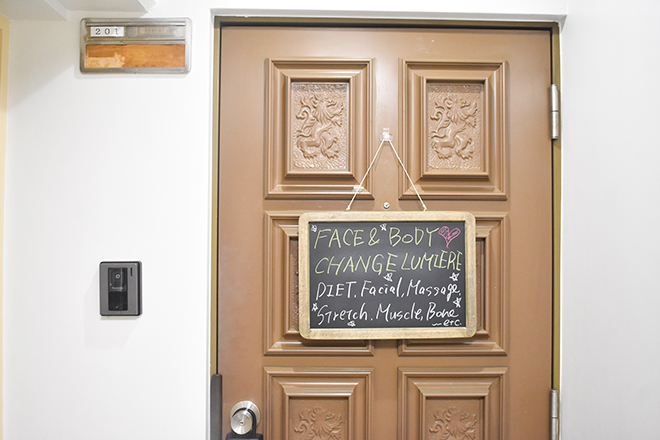 201
FACE & BODY
CHANGE LUMIERE
DIET. Facial, Massage,
Stretch. Muscle, Bone
etc.